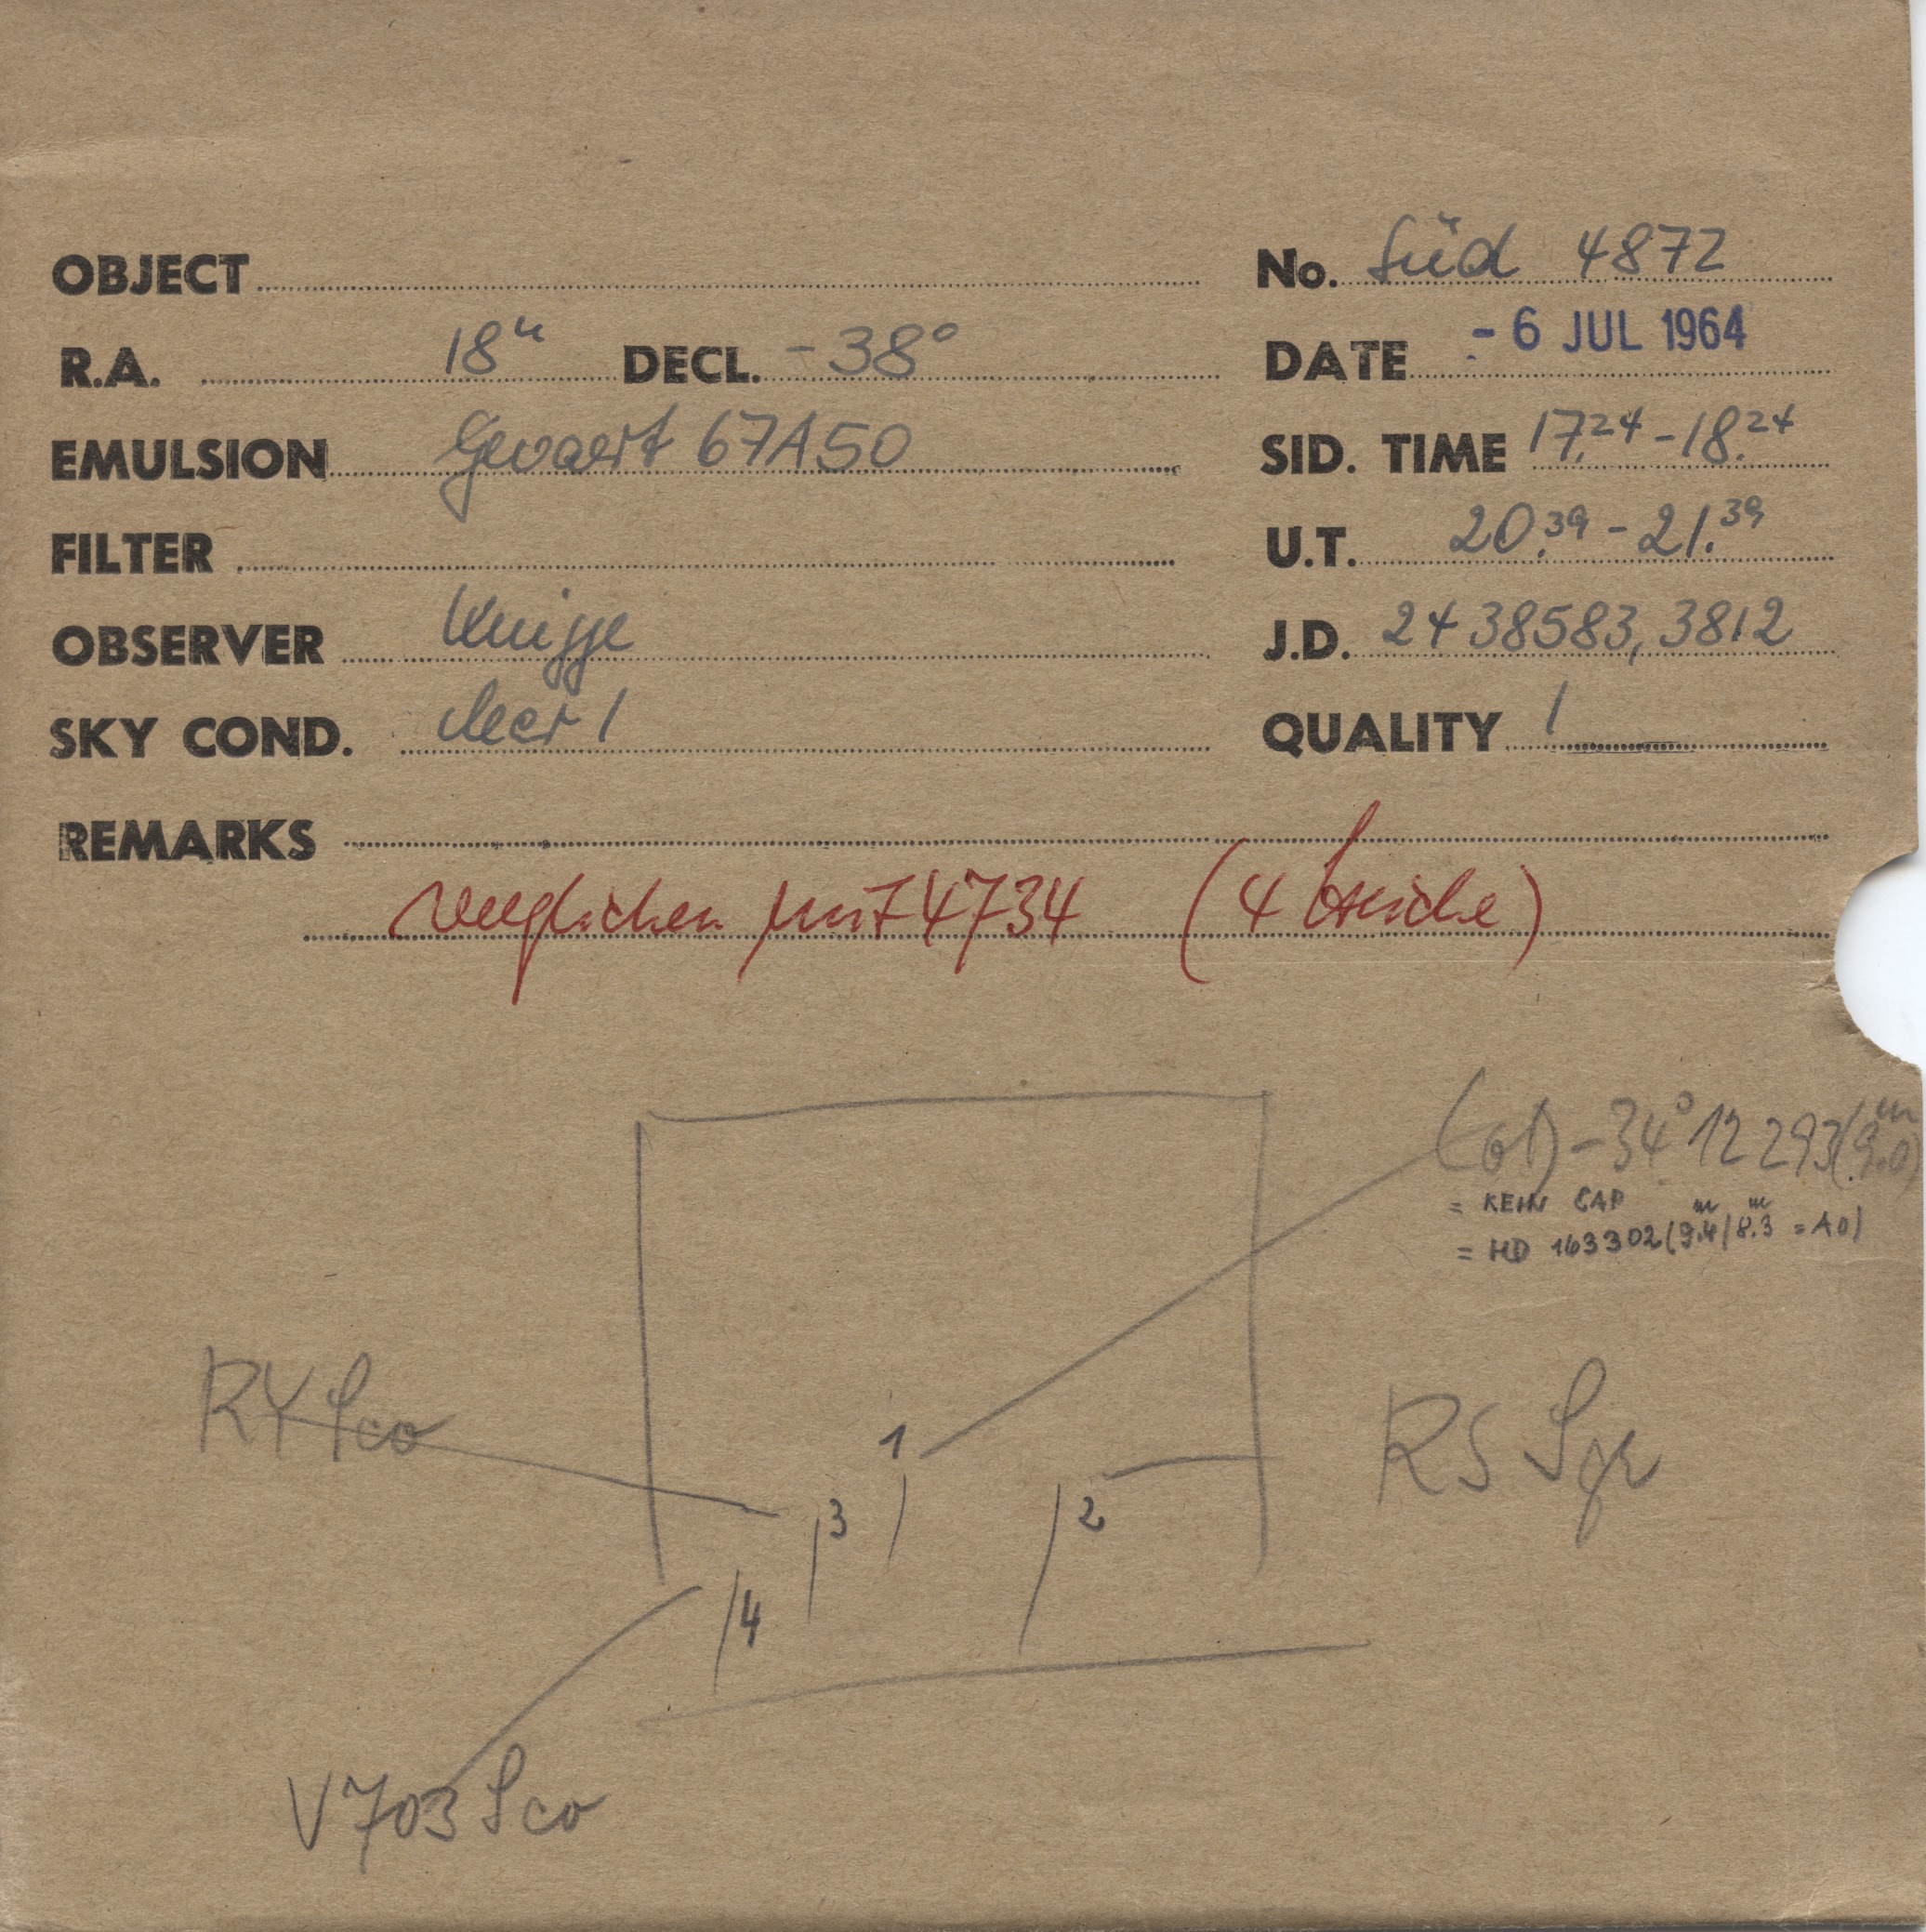 OBJECT
No. Süd 4872
R.A. 18h DECL. -38°
DATE - 6 JUL 1964
EMULSION Gevaert 67A50
SID. TIME 17.24 - 18.24
FILTER
U.T. 20.39 - 21.39
OBSERVER Knigge
J.D. 2438583,3812
SKY COND. clear 1
QUALITY 1
REMARKS
verglichen mit 4734 (4 Striche)
-34° 12 293 (9.0m)
= KEIN CAP
= HD 163302 (9.4m/8.3m = A0)
RY Sco
1
RS Sgr
3
2
4
V703 Sco